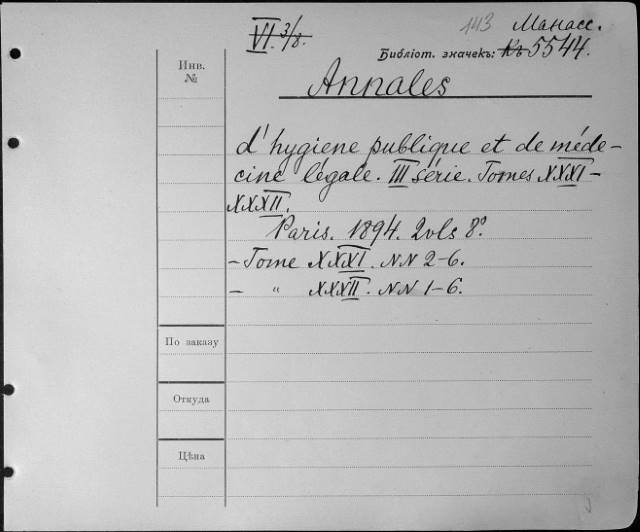 VI. 3/8.
143 Манасс.
Библіот. значекъ: Къ 5544.
Инв.
№
Annales
d'hygiene publique et de méde-
cine légale. III série. Tomes XXXI-
XXXII.
Paris. 1894. 2vls 8º
- Tome XXXI. NN 2-6.
- " XXXII. NN 1-6.
По заказу
Откуда
Цѣна